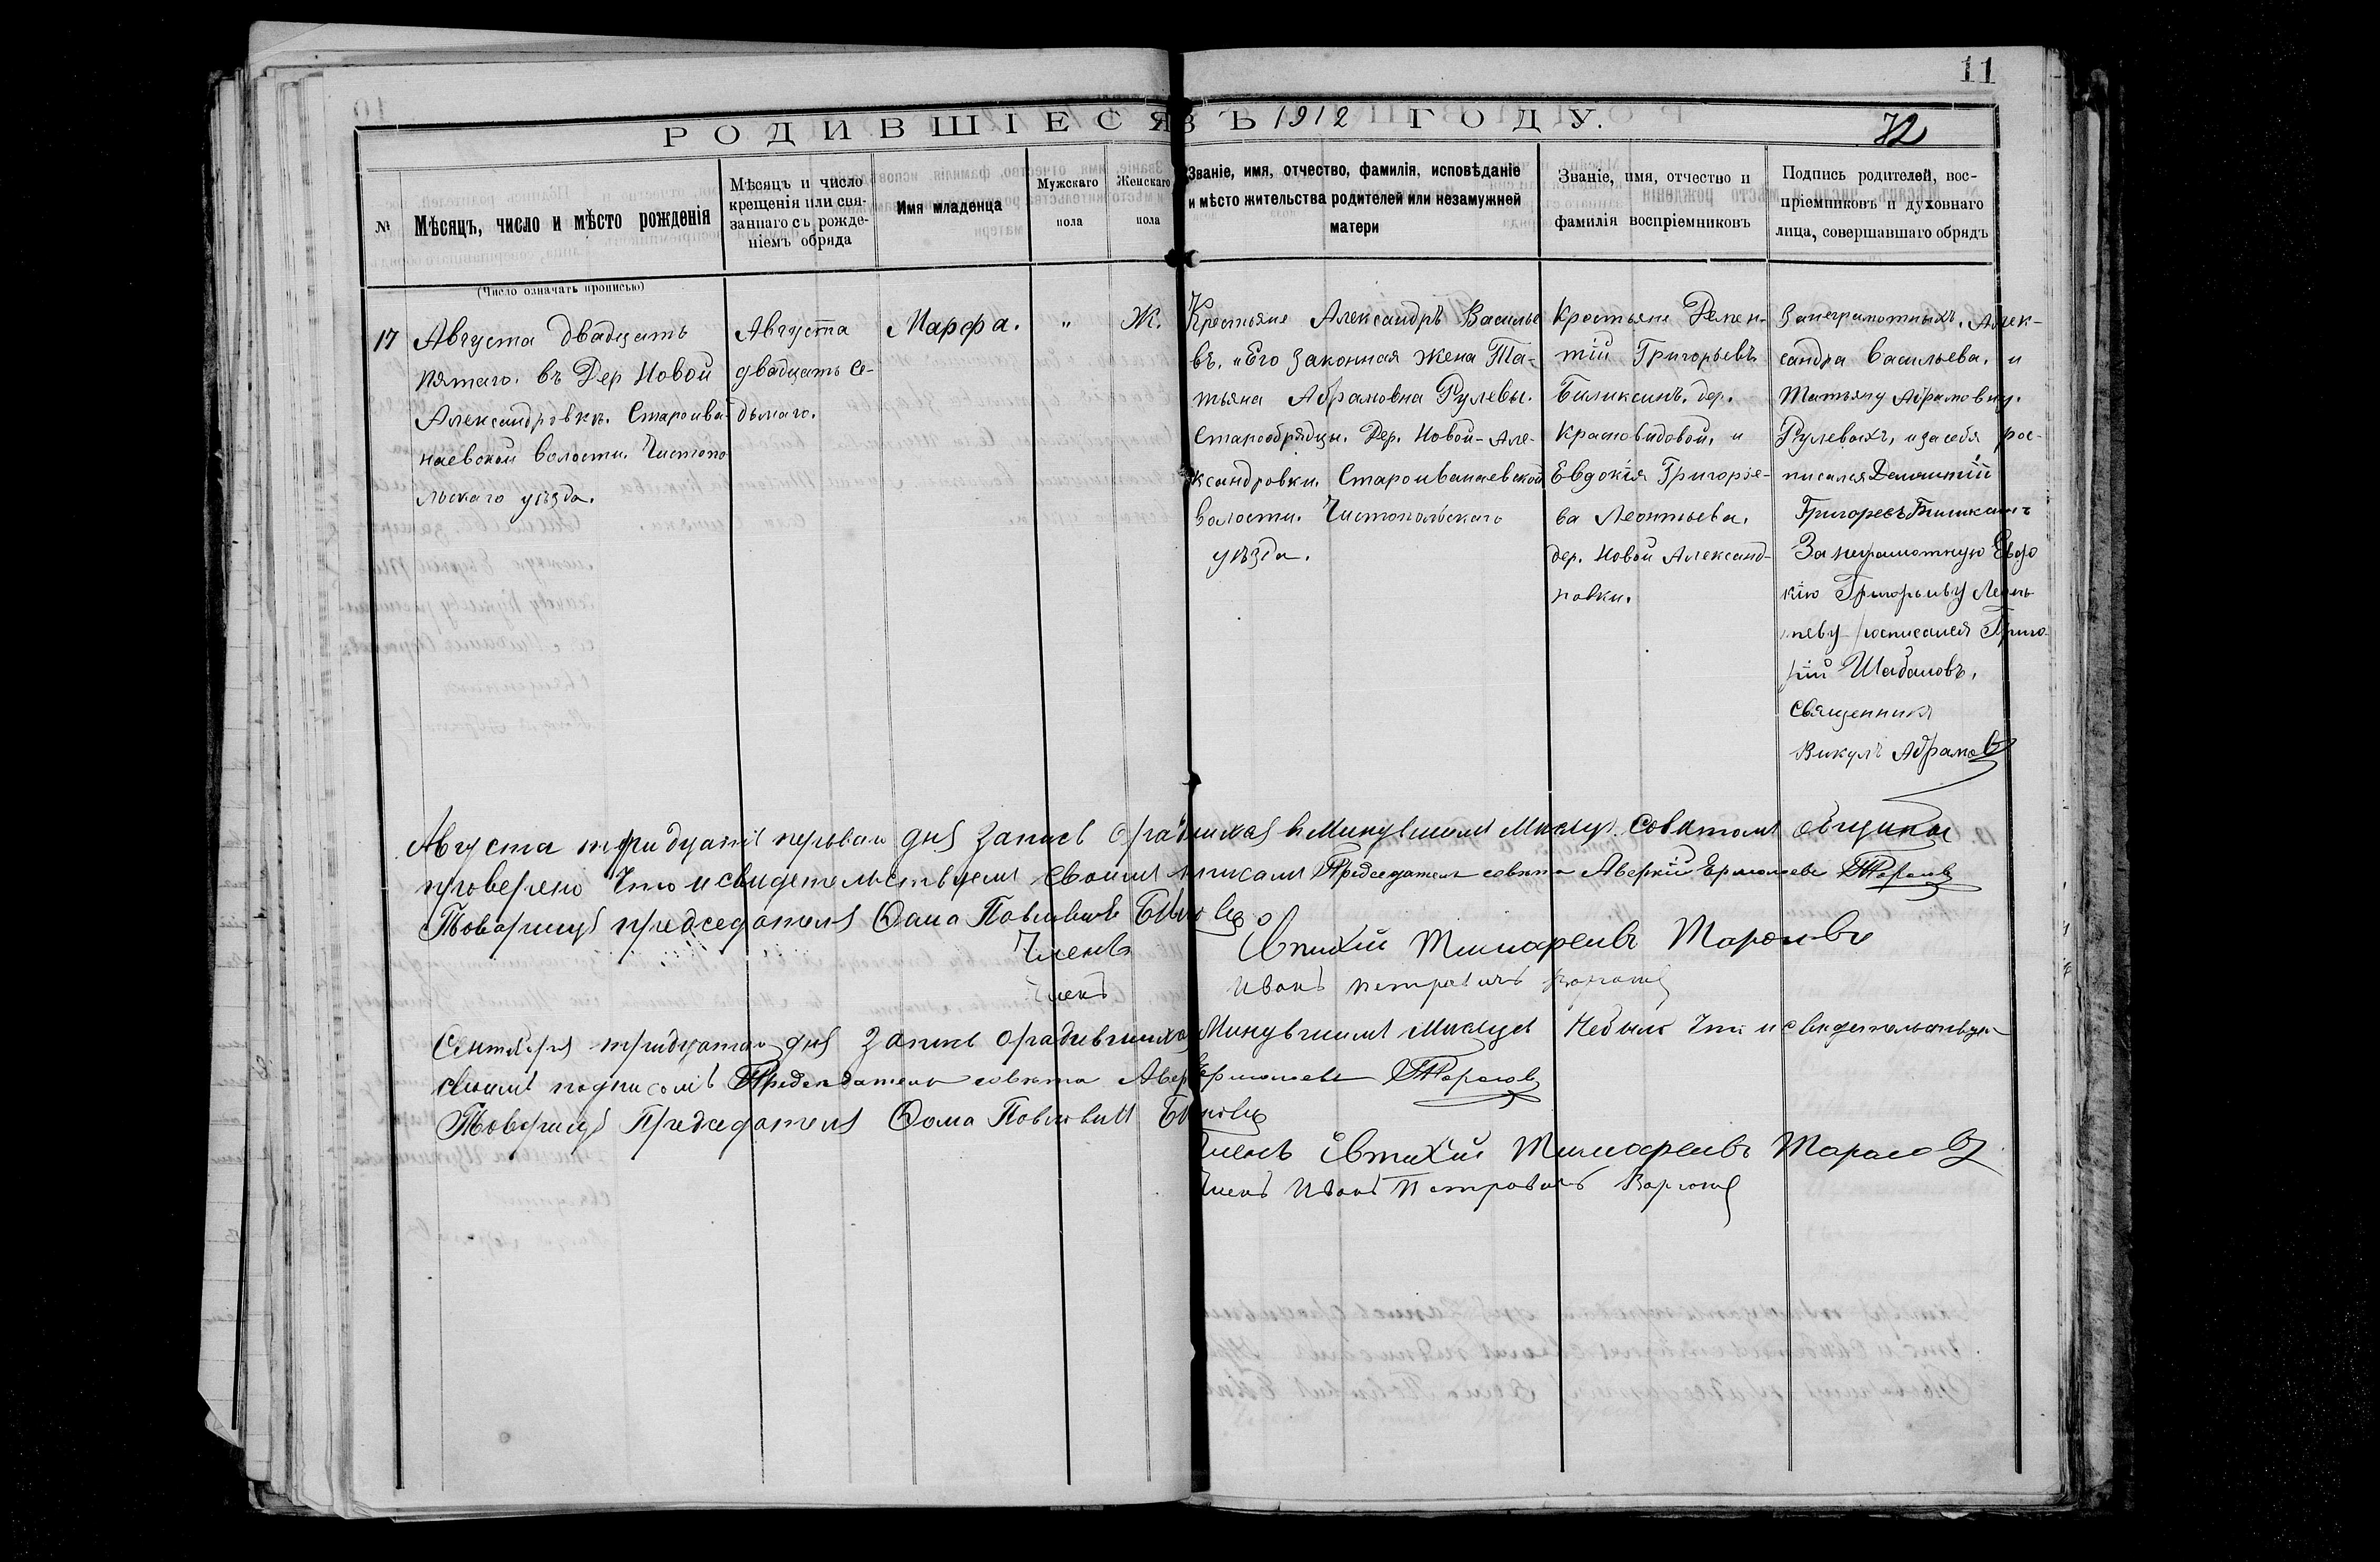 11
РОДИВШІЕСЯ ВЪ 1912 ГОДУ.
72
№
Мѣсяцъ, число и мѣсто рожденія
Мѣсяцъ и число
крещенія или свя-
заннаго съ рожде-
ніемъ обряда
Имя младенца
Мужскаго
пола
Женскаго
пола
Званіе, имя, отчество, фамилія, исповѣданіе
и мѣсто жительства родителей или незамужней
матери
Званіе, имя, отчество и
фамилія воспріемниковъ
Подпись родителей, вос-
пріемниковъ и духовнаго
лица, совершавшаго обрядъ
(Число означать прописью)
17
Августа двадцать
пятаго. въ Дер Новой
Александровкѣ. Староива
наевской волости. Чистопо
льскаго уѣзда.
Августа
двадцать се-
дьмаго.
Марфа.
"
Ж.
Крестьяне Александръ Василье
въ. и Его законная жена Та-
тьяна Абрамовна Рулевы.
Старообрядцы. Дер. Новой-Але-
ксандровки. Староиванаевской
волости. Чистопольскаго
уѣзда.
Крестьяне Демен-
тій Григорьевъ
Биликсинъ. дер.
Красновидовой. и
Евдокія Григорье-
ва Леонтьева.
дер. Новой Александ-
ровки.
За неграмотныхъ. Алек-
сандра Васильева. и
Татьяну Абрамовну.
Рулевыхъ, и за себя рос-
писался Дементій
Григоревъ Биликсинъ
За неграмотную Евдо
кію Григорьеву Леонь
теву росписался Григо
рій Шабаловъ.
Священникъ
Викулъ Абрамовъ
Августа тридцать перваго дня запись о родившихся в Минувшимъ Месяце. Советомъ общины
проверено Что и свидетельствуемъ своими подписами Председатель совета Аверкій Ермолаевъ Тарасовъ
Товарищъ председателя Фома Павловичъ
Членъ Евтихій Тимофеевъ Тарасовъ
Членъ Иванъ Петровичъ
Сентября тридцатаго дня запись о родившихся Минувшимъ Месяце Небыло Что и свидетельствуемъ
своими подписами Председатель совета Авер Ермолаевъ Тарасовъ
Товарищъ Председателя Фома Павловичъ
Членъ Евтихій Тимофеевъ Тарасовъ
Членъ Иванъ Петровичъ